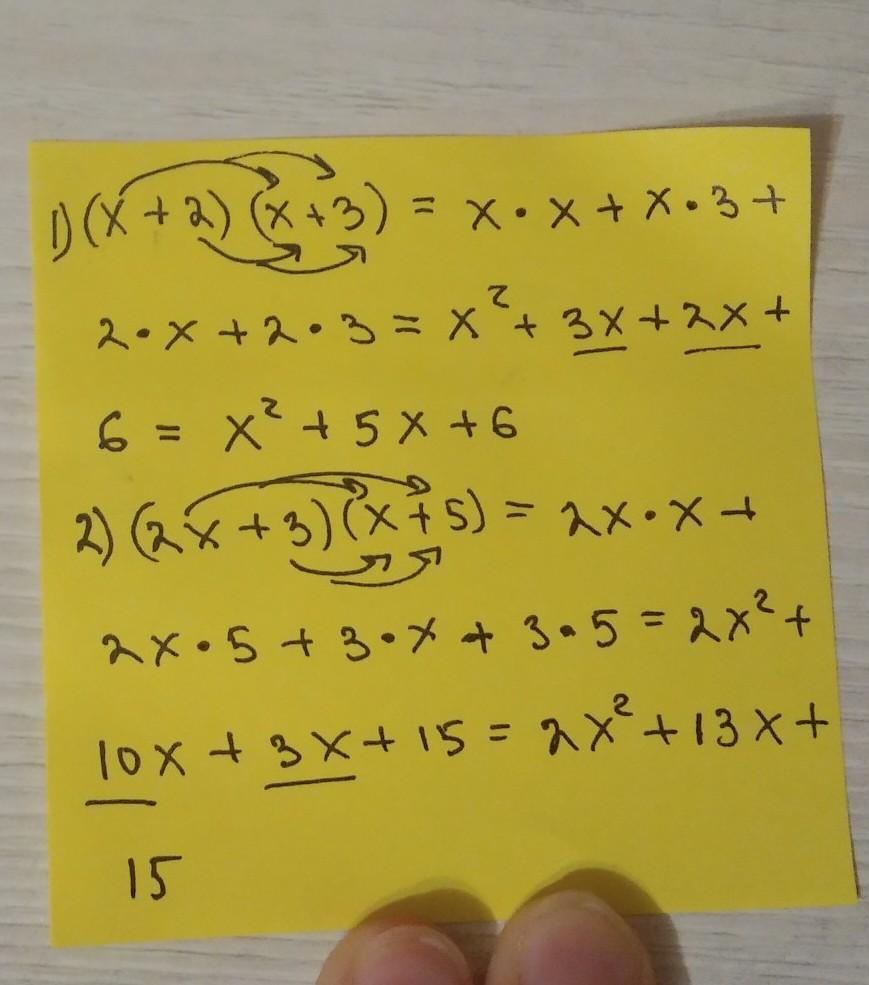 1) (x + 2) (x + 3) = x · x + x · 3 +
2 · x + 2 · 3 = x² + 3x + 2x +
6 = x² + 5x + 6
2) (2x + 3)(x + 5) = 2x · x +
2x · 5 + 3 · x + 3 · 5 = 2x² +
10x + 3x + 15 = 2x² + 13x +
15